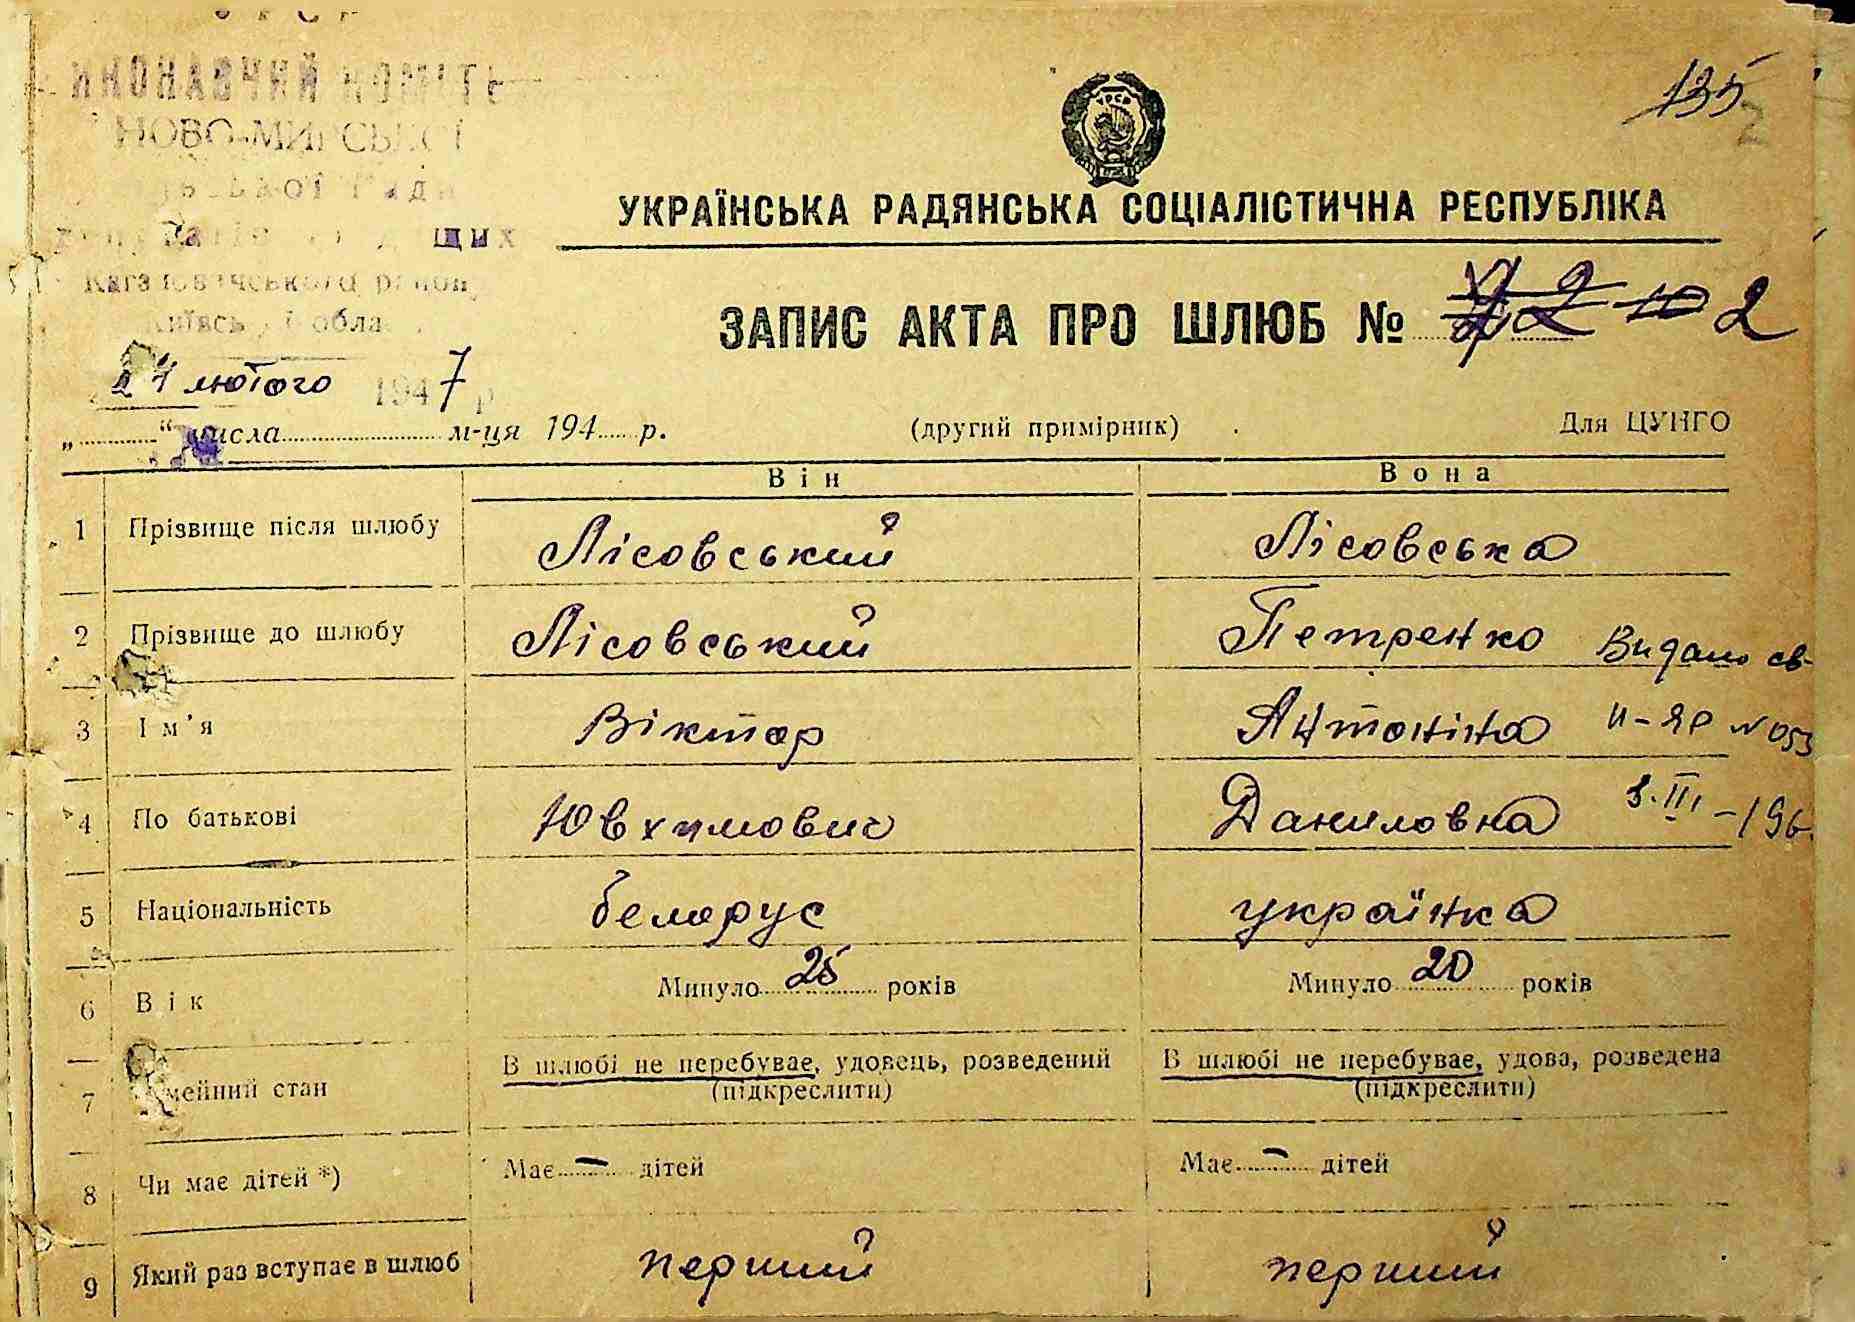 НОВО-МИРСЬКОЇ
Кагановичського району
135
2
УРСР
УКРАЇНСЬКА РАДЯНСЬКА СОЦІАЛІСТИЧНА РЕСПУБЛІКА
ЗАПИС АКТА ПРО ШЛЮБ № 2
лютого 1947 р
„ “ числа м-ця 194 р.
(другий примірник)
Для ЦУНГО
Він Вона
1 Прізвище після шлюбу Лісовський Лісовська
2 Прізвище до шлюбу Лісовський Петренко Видано св-
3 Ім'я Віктор Антоніна II-ЯР № 053
4 По батькові Ювхимович Даниловна
5 Національність беларус українка
6 Вік Минуло 25 років Минуло 20 років
7 мейний стан В шлюбі не перебуває, удовець, розведений В шлюбі не перебуває, удова, розведена
(підкреслити) (підкреслити)
8 Чи має дітей *) Має — дітей Має — дітей
9 Який раз вступає в шлюб перший перший